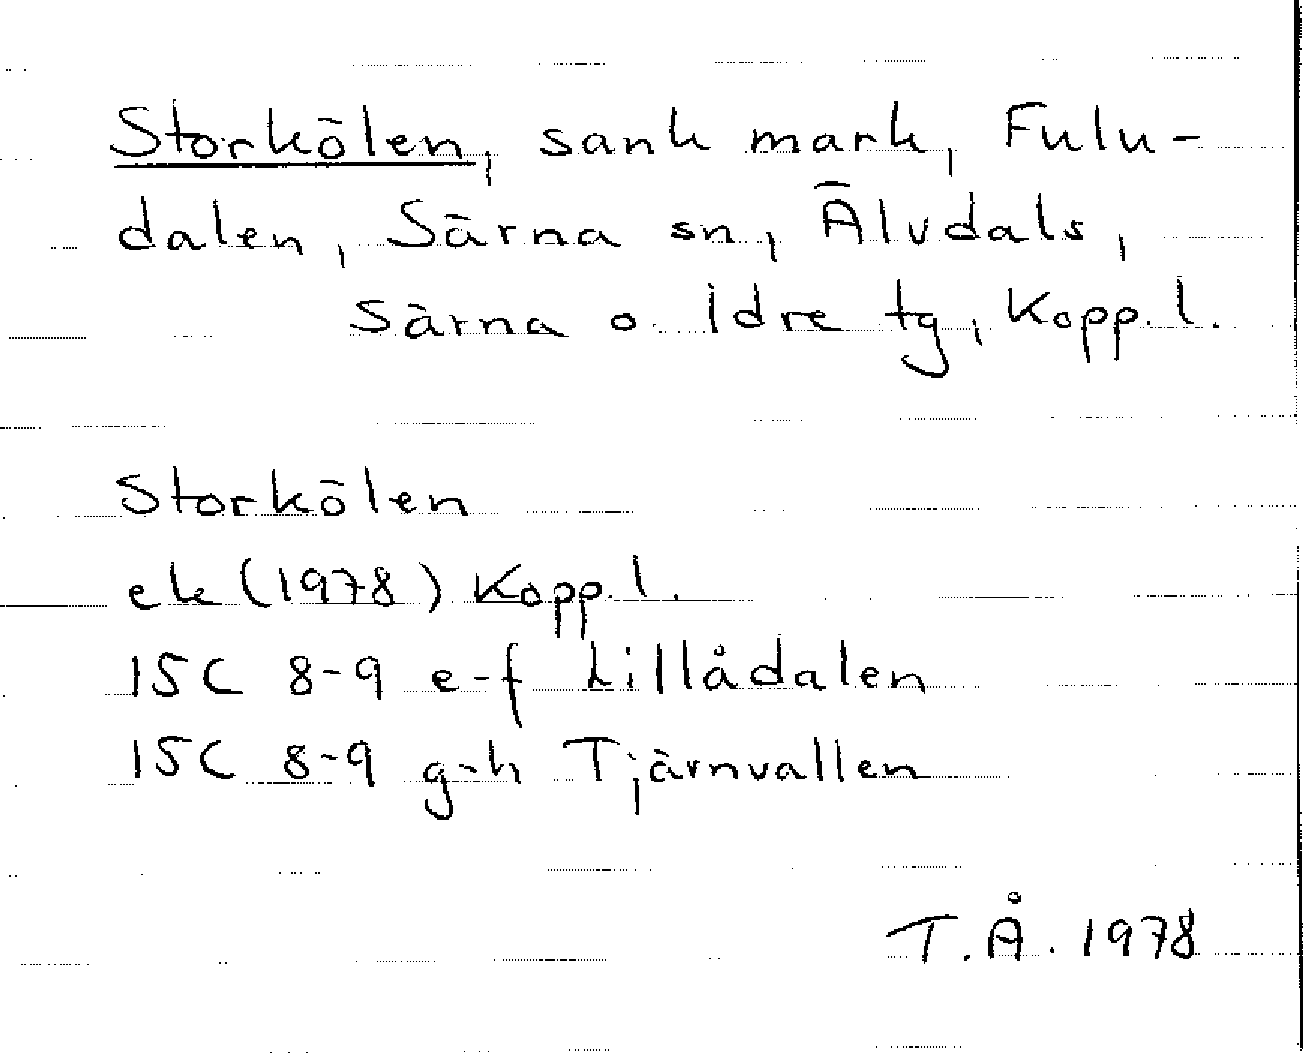 Storkölen, sank mark, Fulu-
dalen, Särna sn, Älvdals,
Särna o. Idre tg, Kopp. l.
Storkölen
ek (1978) Kopp. l.
15C 8-9 e-f Lillådalen
15C 8-9 g-h Tjärnvallen
T.Å. 1978